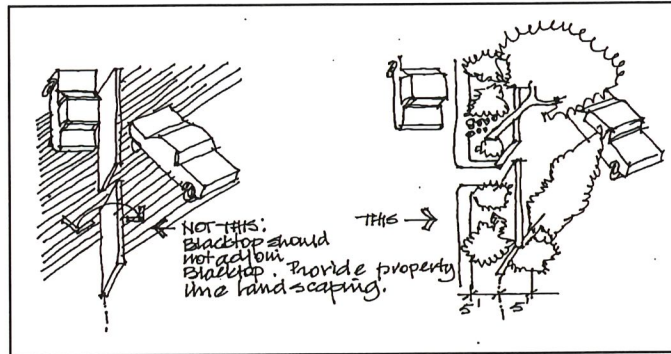 NOT THIS:
Blacktop should
not adjoin
Blacktop. Provide property
line landscaping.
THIS
5' 5'